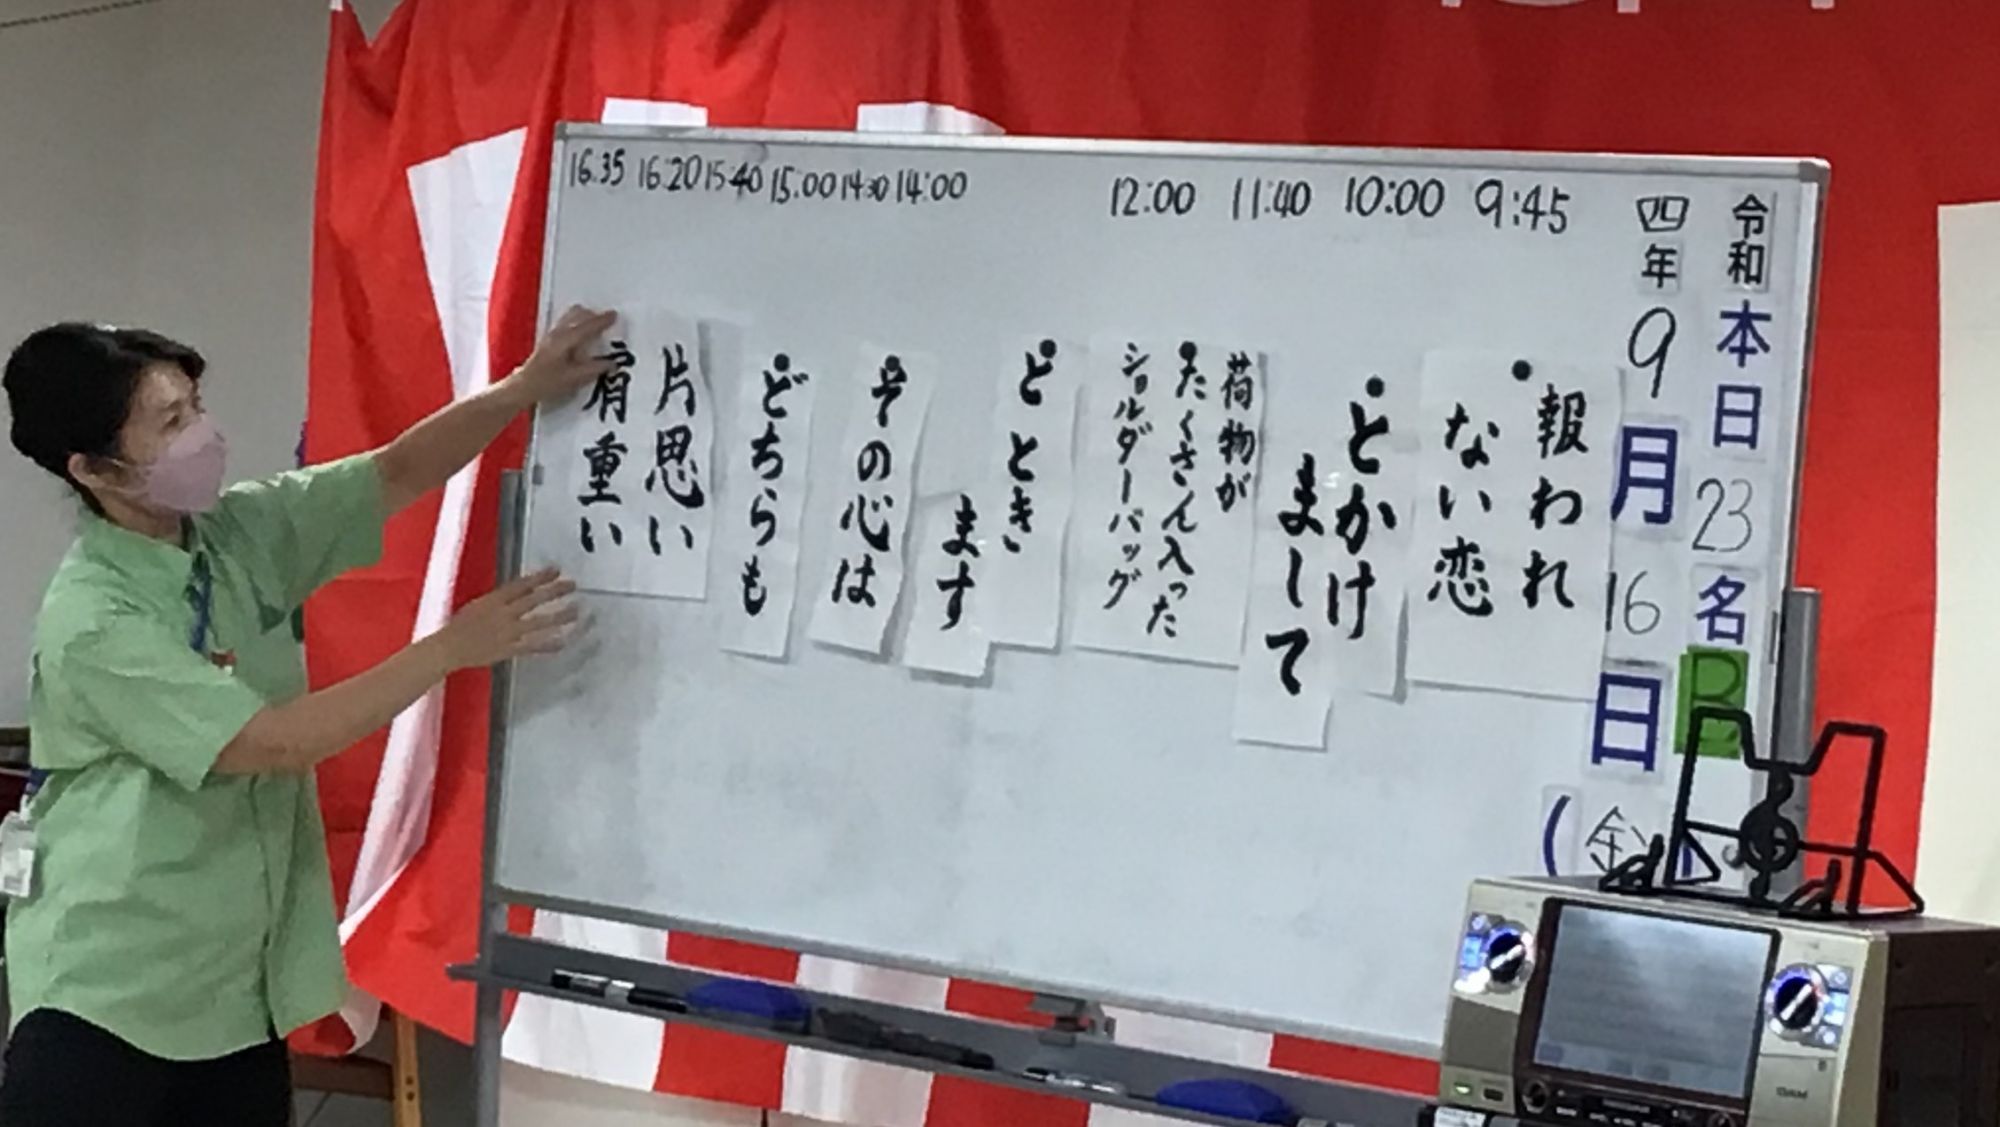 令和
本日23名
B
四年
9月16日
(金)
9:45
10:00
11:40
12:00
14:00
14:30
15:00
15:40
16:20
16:35
報われ
ない恋
とかけ
まして
荷物が
たくさん入った
ショルダーバッグ
ととき
ます
その心は
どちらも
片思い
肩重い
DAM